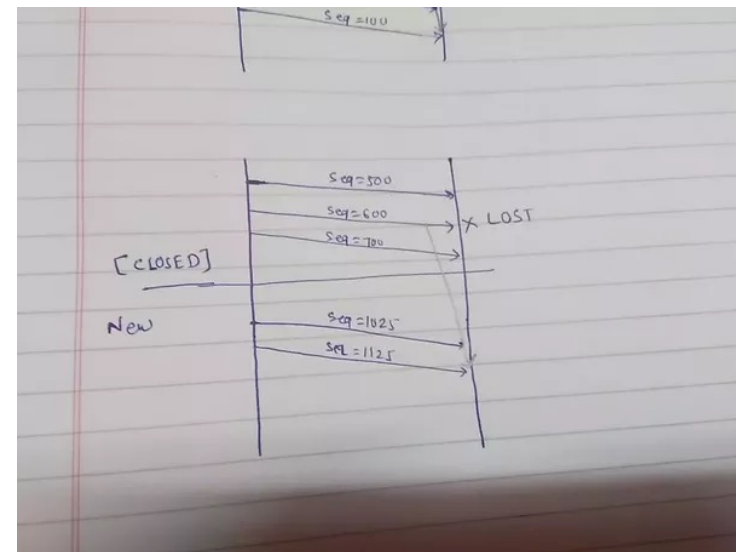 Seq=100
Seq=500
Seq=600
X LOST
Seq=700
[CLOSED]
New
Seq=1025
Seq=1125